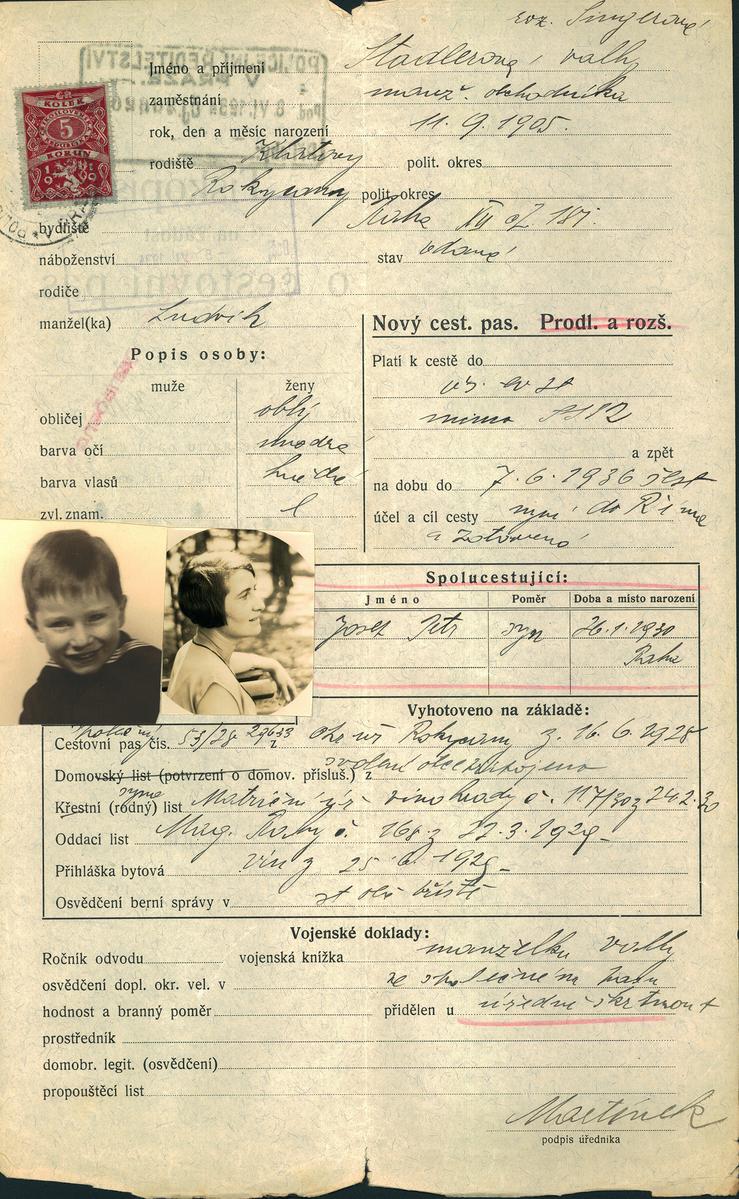 roz. Singerová
Jméno a příjmení Stadlerová Vally
zaměstnání manž. obchodníka
rok, den a měsíc narození 11. 9. 1905.
rodiště polit. okres
Rokycany polit. okres
bydliště Praha XII čp. 187.
náboženství stav vdaná
rodiče
manžel(ka) Ludvík
KOLEK
5
KORUN
Nový cest. pas. Prodl. a rozš.
Popis osoby:
muže ženy
obličej oblý
barva očí modré
barva vlasů hnědé
zvl. znam.
Platí k cestě do
vš. ev. st
mimo SSSR
a zpět
na dobu do 7. 6. 1936 šest
účel a cíl cesty nyní do Říma
a zotavení
Spolucestující:
Jméno Poměr Doba a místo narození
Josef Petr syn 26. 1. 1930
Praha
Vyhotoveno na základě:
Cestovní pas čís. 53/28 z Rokycany z. 16. 6. 1928
Domovský list (potvrzení o domov. přísluš.) z
syna
Křestní (rodný) list Matriční úř. Vinohrady č. 117/30 z 24. 2. 30
Oddací list Mag. Prahy č. 168 z 22. 3. 1929
Přihláška bytová XII z 25. 6. 1929
Osvědčení berní správy v
Vojenské doklady:
Ročník odvodu vojenská knížka manželku Vally
osvědčení dopl. okr. vel. v ze společného pasu
hodnost a branný poměr přidělen u úředně škrtnout
prostředník
domobr. legit. (osvědčení)
propouštěcí list
Martínek
podpis úředníka